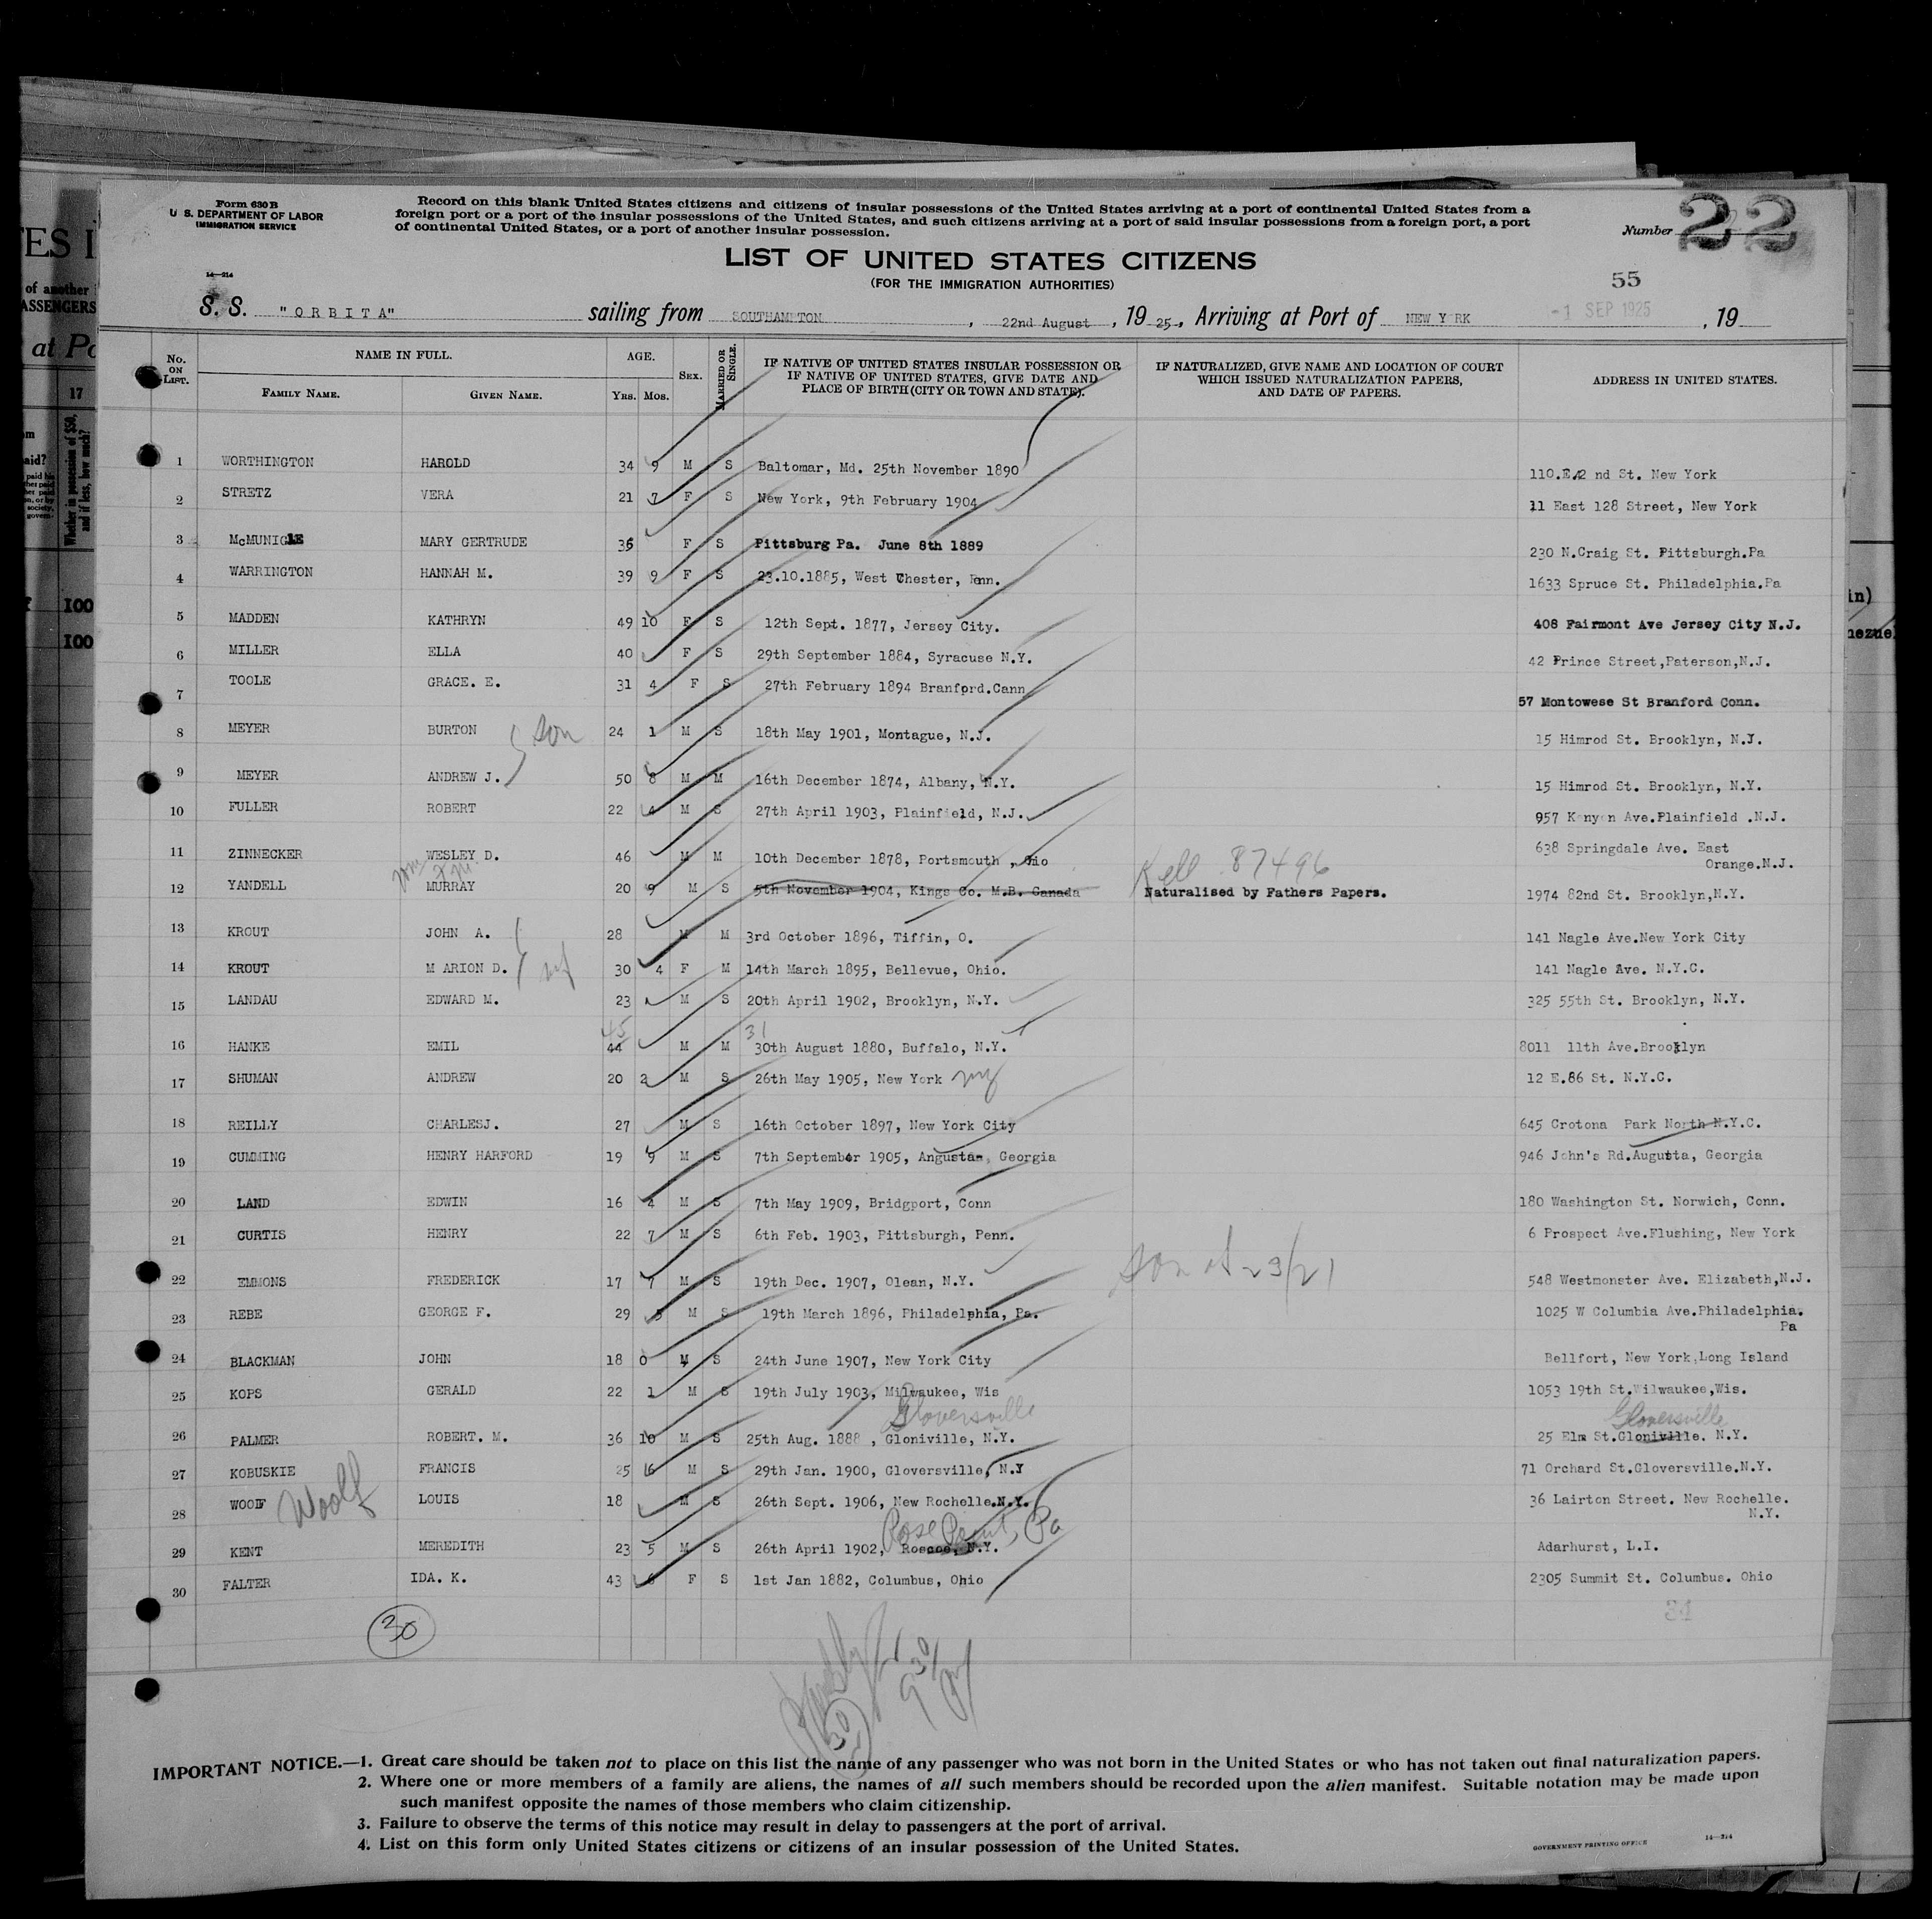 Form 630 B
U. S. DEPARTMENT OF LABOR
IMMIGRATION SERVICE
Record on this blank United States citizens and citizens of insular possessions of the United States arriving at a port of continental United States from a
foreign port or a port of the insular possessions of the United States, and such citizens arriving at a port of said insular possessions from a foreign port, a port
of continental United States, or a port of another insular possession.
Number 22
LIST OF UNITED STATES CITIZENS
(FOR THE IMMIGRATION AUTHORITIES)
55
14—214
S. S. "ORBITA" sailing from SOUTHAMPTON, 22nd August, 19 25., Arriving at Port of NEW YORK -1 SEP 1925, 19
No. ON LIST. NAME IN FULL. AGE. SEX. MARRIED OR SINGLE. IF NATIVE OF UNITED STATES INSULAR POSSESSION OR IF NATIVE OF UNITED STATES, GIVE DATE AND PLACE OF BIRTH (CITY OR TOWN AND STATE). IF NATURALIZED, GIVE NAME AND LOCATION OF COURT WHICH ISSUED NATURALIZATION PAPERS, AND DATE OF PAPERS. ADDRESS IN UNITED STATES.
FAMILY NAME. GIVEN NAME. YRS. MOS.
1 WORTHINGTON HAROLD 34 9 M S Baltomar, Md. 25th November 1890 110.E. nd St. New York
2 STRETZ VERA 21 7 F S New York, 9th February 1904 11 East 128 Street, New York
3 McMUNIGLE MARY GERTRUDE 36 F S Pittsburg Pa. June 8th 1889 230 N.Craig St. Pittsburgh.Pa
4 WARRINGTON HANNAH M. 39 9 F S 23.10.1885, West Chester, Penn. 1633 Spruce St. Philadelphia.Pa
5 MADDEN KATHRYN 49 10 F S 12th Sept. 1877, Jersey City. 408 Fairmont Ave Jersey City N.J.
6 MILLER ELLA 40 F S 29th September 1884, Syracuse N.Y. 42 Prince Street,Paterson,N.J.
7 TOOLE GRACE. E. 31 4 F S 27th February 1894 Branford.Cann 57 Montowese St Branford Conn.
8 MEYER BURTON son 24 1 M S 18th May 1901, Montague, N.J. 15 Himrod St. Brooklyn, N.J.
9 MEYER ANDREW J. 50 8 M M 16th December 1874, Albany, N.Y. 15 Himrod St. Brooklyn, N.Y.
10 FULLER ROBERT 22 4 M S 27th April 1903, Plainfield, N.J. 957 Kenyon Ave.Plainfield .N.J.
11 ZINNECKER WESLEY D. 46 M M 10th December 1878, Portsmouth , Ohio 638 Springdale Ave. East
Orange.N.J.
87496
12 YANDELL MURRAY 20 9 M S 5th November 1904, Kings Co. M.B. Canada Naturalised by Fathers Papers. 1974 82nd St. Brooklyn,N.Y.
13 KROUT JOHN A. 28 M M 3rd October 1896, Tiffin, O. 141 Nagle Ave.New York City
14 KROUT M ARION D. wf 30 4 F M 14th March 1895, Bellevue, Ohio. 141 Nagle Ave. N.Y.C.
15 LANDAU EDWARD M. 23 M S 20th April 1902, Brooklyn, N.Y. 325 55th St. Brooklyn, N.Y.
45 31
16 HANKE EMIL 44 M M 30th August 1880, Buffalo, N.Y. 8011 11th Ave.Brooklyn
17 SHUMAN ANDREW 20 2 M S 26th May 1905, New York ny 12 E.86 St. N.Y.C.
18 REILLY CHARLESJ. 27 M S 16th October 1897, New York City 645 Crotona Park North N.Y.C.
19 CUMMING HENRY HARFORD 19 9 M S 7th September 1905, Angusta, Georgia 946 John's Rd.Augutta, Georgia
20 LAND EDWIN 16 4 M S 7th May 1909, Bridgport, Conn 180 Washington St. Norwich, Conn.
21 CURTIS HENRY 22 7 M S 6th Feb. 1903, Pittsburgh, Penn. 6 Prospect Ave.Flushing, New York
22 EMMONS FREDERICK 17 7 M S 19th Dec. 1907, Olean, N.Y. son of 23/21 548 Westmonster Ave. Elizabeth,N.J.
23 REBE GEORGE F. 29 5 M S 19th March 1896, Philadelphia, Pa. 1025 W Columbia Ave.Philadelphia.
Pa
24 BLACKMAN JOHN 18 0 M S 24th June 1907, New York City Bellfort, New York,Long Island
25 KOPS GERALD 22 1 M S 19th July 1903, Milwaukee, Wis 1053 19th St.Wilwaukee,Wis.
Gloversville Gloversville
26 PALMER ROBERT. M. 36 10 M S 25th Aug. 1888 , Gloniville, N.Y. 25 Elm St.Gloniville. N.Y.
27 KOBUSKIE FRANCIS 25 6 M S 29th Jan. 1900, Gloversville, N.Y 71 Orchard St.Gloversville.N.Y.
28 WOOF Woolf LOUIS 18 M S 26th Sept. 1906, New Rochelle.N.Y. 36 Lairton Street. New Rochelle.
N.Y.
Rose Point, Pa
29 KENT MEREDITH 23 5 M S 26th April 1902, Roscoe, N.Y. Adarhurst, L.I.
30 FALTER IDA. K. 43 6 F S 1st Jan 1882, Columbus, Ohio 2305 Summit St. Columbus. Ohio
34
30
30
930
IMPORTANT NOTICE.—1. Great care should be taken not to place on this list the name of any passenger who was not born in the United States or who has not taken out final naturalization papers.
2. Where one or more members of a family are aliens, the names of all such members should be recorded upon the alien manifest. Suitable notation may be made upon
such manifest opposite the names of those members who claim citizenship.
3. Failure to observe the terms of this notice may result in delay to passengers at the port of arrival.
4. List on this form only United States citizens or citizens of an insular possession of the United States.
GOVERNMENT PRINTING OFFICE 14—214